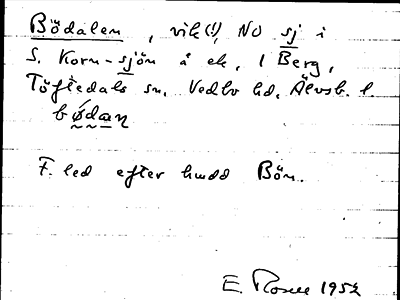 Bödalen, vik(!), NO sj i
S. Korn-sjön å ek, 1 Berg,
Töftedals sn, Vedbo hd, Älvsb. l.
bødan
F. led efter hmdd Bön.
E. Rosell 1952